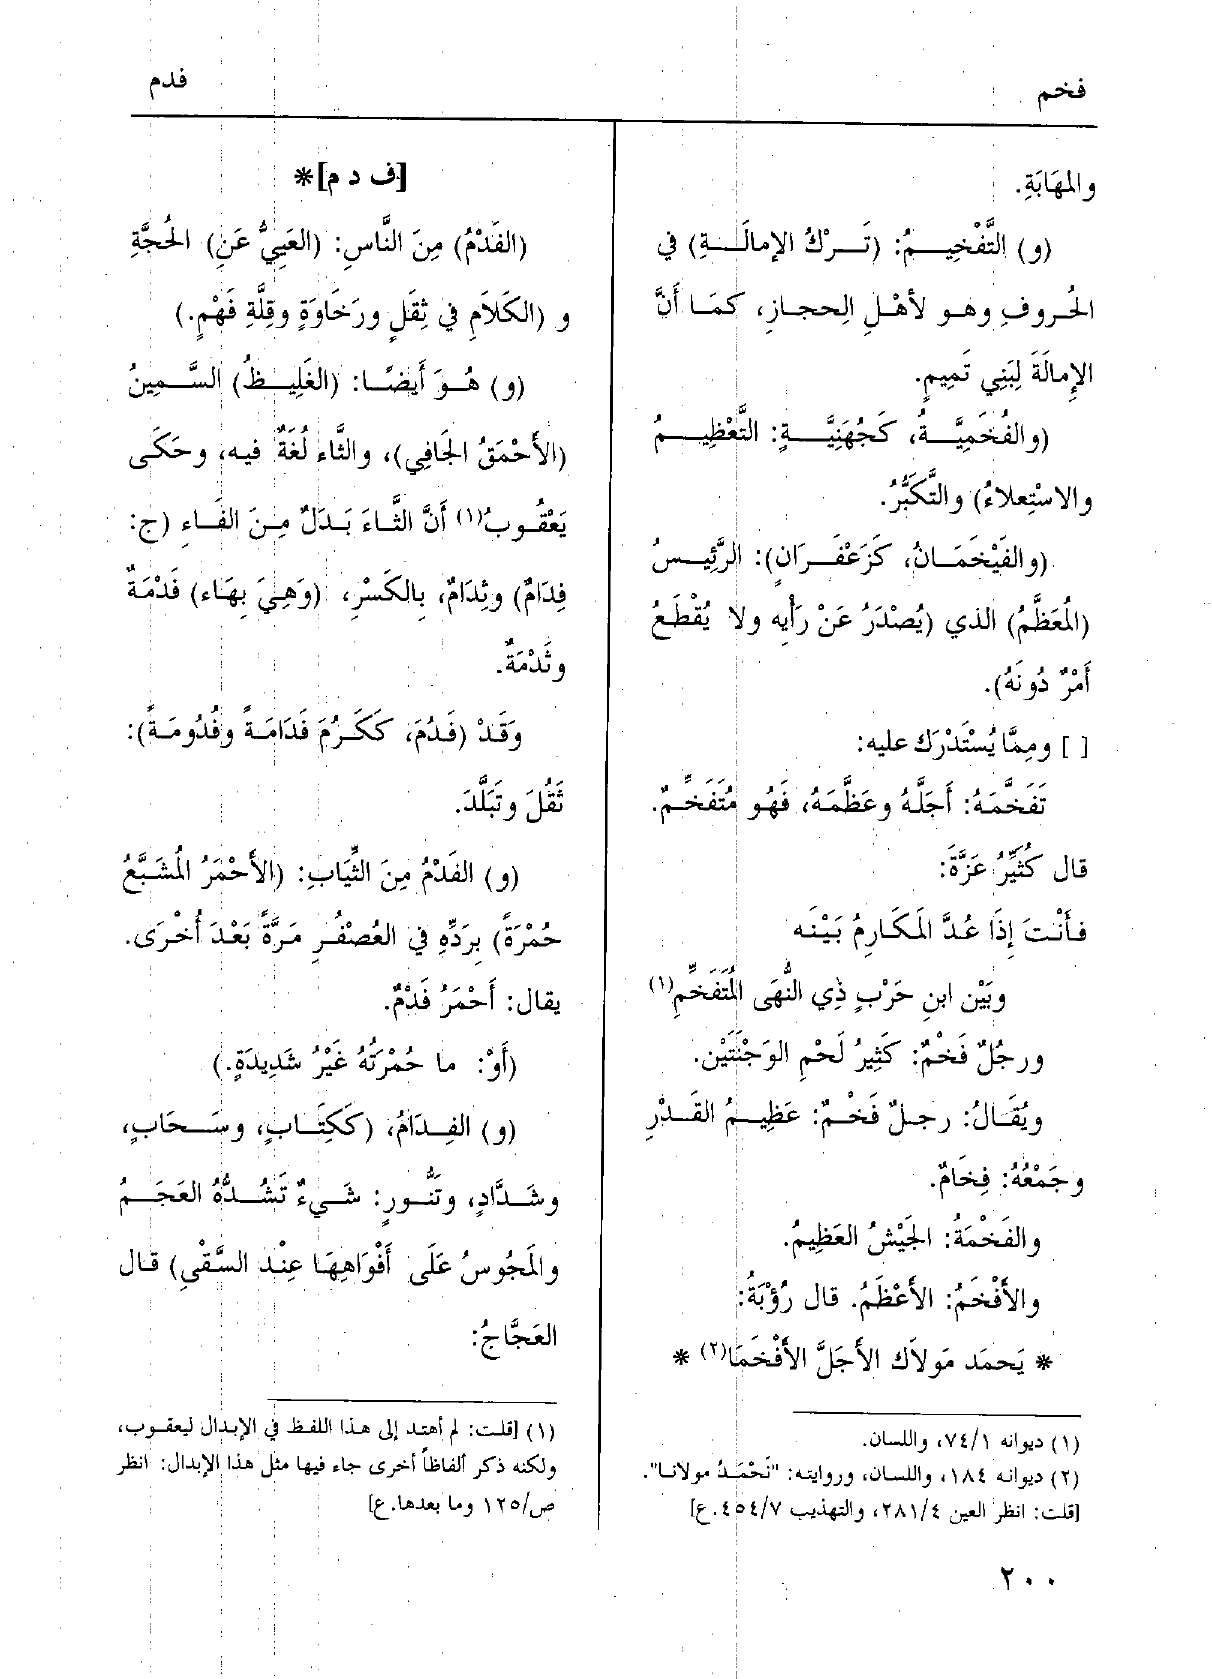 فخم
فدم
والمهَابَةِ.
(و) التَّفْخِيمُ: (تَرْكُ الإمالَةِ) في
الحُروفِ وهو لأهْلِ الحجازِ، كمَا أنَّ
الإمالَةَ لِبَنِي تَمِيمٍ.
(والفُخَمِيَّةُ، كَجُهَنِيَّةٍ: التَّعْظِيمُ
والاسْتِعلاءُ) والتَّكَبُّرُ.
(والفَيْخَمَانُ، كَزَعْفَرَانٍ): الرَّئِيسُ
(المُعَظَّمُ) الذي (يُصْدَرُ عَنْ رَأْيِه ولا يُقْطَعُ
أَمْرٌ دُونَهُ).
[ ] ومِمَّا يُسْتَدْرَك عليه:
تَفَخَّمَهُ: أَجَلَّهُ وعَظَّمَهُ، فَهُو مُتَفَخِّمٌ.
قال كُثَيِّرُ عَزَّةَ:
فأَنْتَ إِذَا عُدَّ المَكَارِمُ بَيْنَه
وبَيْن ابنِ حَرْبٍ ذِي النُّهَى المُتَفَخِّمِ(١)
ورجُلٌ فَخْمٌ: كَثِيرُ لَحْمِ الوَجْنَتَيْن.
ويُقَالُ: رجلٌ فَخْمٌ: عَظِيمُ القَدْرِ
وجَمْعُهُ: فِخَامٌ.
والفَخْمَةُ: الجَيْشُ العَظِيمُ.
والأَفْخَمُ: الأَعْظَمُ. قال رُؤْبَةُ:
* يَحمَد مَولاَك الأَجَلَّ الأَفْخَمَا(٢) *
(١) ديوانه ٧٤/١، واللسان.
(٢) ديوانه ١٨٤، واللسان، وروايته: "نَحْمَدُ مولانا".
[قلت: انظر العين ٢٨١/٤، والتهذيب ٤٥٤/٧.ع]
[ف د م]*
(الفَدْمُ) مِنَ النَّاسِ: (العَيِيُّ عَنِ) الحُجَّةِ
و (الكَلاَمِ في ثِقَلٍ ورَخَاوَةٍ وقِلَّةِ فَهْمٍ.)
(و) هُوَ أَيضًا: (الغَلِيظُ) السَّمِينُ
(الأَحْمَقُ الجَافِي)، والثَّاء لُغَةٌ فيه، وحَكَى
يَعْقُوبُ(١) أَنَّ الثَّاءَ بَدَلٌ مِنَ الفَاءِ (ج:
فِدَامٌ) وثِدَامٌ، بِالكَسْرِ، (وَهِيَ بِهَاء) فَدْمَةٌ
وثَدْمَةٌ.
وَقَدْ (فَدُمَ، كَكَرُمَ فَدَامَةً وفُدُومَةً):
ثَقُلَ وتَبَلَّدَ.
(و) الفَدْمُ مِنَ الثِّيَابِ: (الأَحْمَرُ المُشَبَّعُ
حُمْرَةً) بِرَدِّهِ في العُصْفُرِ مَرَّةً بَعْدَ أُخْرَى.
يقال: أَحْمَرُ فَدْمٌ.
(أَوْ: ما حُمْرَتُهُ غَيْرُ شَدِيدَةٍ.)
(و) الفِدَامُ، (كَكِتَابٍ، وسَحَابٍ،
وشَدَّادٍ، وتَنُّورٍ: شَيءٌ تَشُدُّهُ العَجَمُ
والمَجُوسُ عَلَى أَفْوَاهِهَا عِنْد السَّقْيِ) قال
العَجَّاجُ:
(١) [قلت: لم أهتد إلى هذا اللفظ في الإبدال ليعقوب،
ولكنه ذكر ألفاظاً أخرى جاء فيها مثل هذا الإبدال: انظر
ص/١٢٥ وما بعدها.ع]
٢٠٠